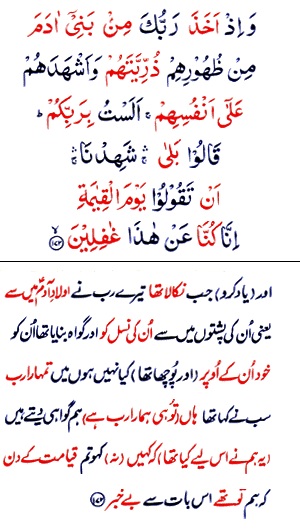 وَاِذْ اَخَذَ رَبُّكَ مِنْۢ بَنِیْۤ اٰدَمَ
مِنْ ظُهُوْرِهِمْ ذُرِّیَّتَهُمْ وَاَشْهَدَهُمْ
عَلٰۤی اَنْفُسِهِمْ ۚ اَلَسْتُ بِرَبِّكُمْ ؕ
قَالُوْا بَلٰی ۛۚ شَهِدْنَا ۛۚ
اَنْ تَقُوْلُوْا یَوْمَ الْقِیٰمَةِ
اِنَّا كُنَّا عَنْ هٰذَا غٰفِلِیْنَ ﴿۱۷۲﴾
اور (یاد کرو) جب نکالا تھا تیرے رب نے اولادِ آدمؑ میں سے
یعنی اُن کی پشتوں میں سے اُن کی نسل کو اور گواہ بنایا تھا اُن کو
خود اُن کے اُوپر (اور پوچھا تھا) کیا نہیں ہوں میں تمہارا رب
سب نے کہا تھا ہاں (تُو ہی ہمارا رب ہے) ہم گواہی دیتے ہیں
(یہ ہم نے اس لیے کیا تھا) کہ کہیں (نہ) کہو تم قیامت کے دن
کہ ہم تو تھے اس بات سے بے خبر ﴿۱۷۲﴾